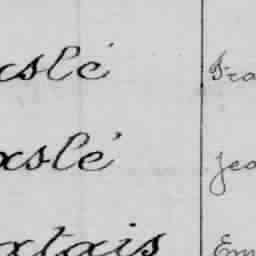 xslé Fra
xslé Jea
xtais Em